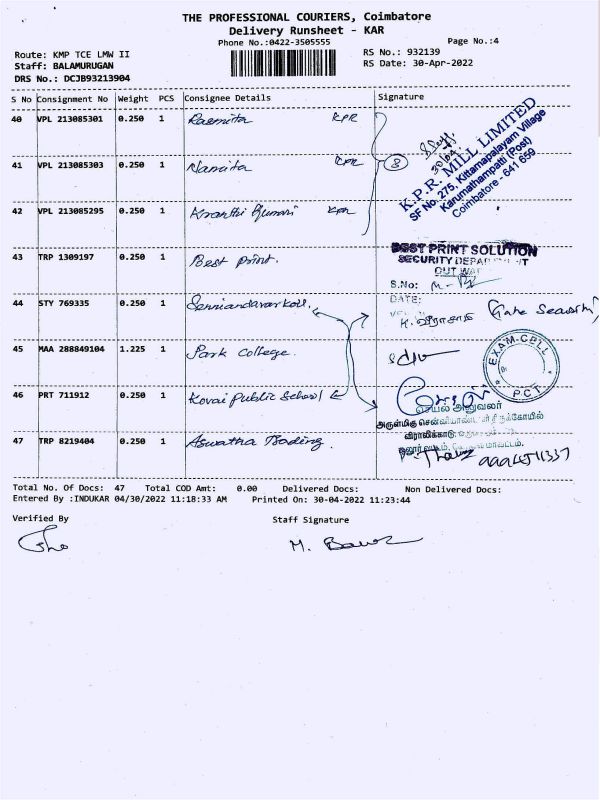 THE PROFESSIONAL COURIERS, Coimbatore
Delivery Runsheet - KAR
Phone No.:0422-3505555
Page No.:4
Route: KMP TCE LMW II
RS No.: 932139
Staff: BALAMURUGAN
RS Date: 30-Apr-2022
DRS No.: DCJB93213904
S No Consignment No Weight PCS Consignee Details Signature
40 VPL 213085301 0.250 1 Rasmita KPR
41 VPL 213085303 0.250 1 Namita KPR 8
42 VPL 213085295 0.250 1 Kranthi Kumari KPR
K.P.R. MILL LIMITED
SF No. 275, Kittampalayam Village
Karumathampatti (Post)
Coimbatore - 641 659
43 TRP 1309197 0.250 1 Best Print.
BEST PRINT SOLUTION
SECURITY DEPARTMENT
OUT WARD
S.No:
DATE:
44 STY 769335 0.250 1 Senniandavar Koil.
K. வீராசாமி (Gate Security)
45 MAA 288849104 1.225 1 Park College.
EXAM-CELL
P.C.T
46 PRT 711912 0.250 1 Kovai Public School
செயல் அலுவலர்
அருள்மிகு சென்னியாண்டவர் திருக்கோயில்
விராலிக்காடு
47 TRP 8219404 0.250 1 Aswatha Trading.
Total No. Of Docs: 47 Total COD Amt: 0.00 Delivered Docs: Non Delivered Docs:
Entered By :INDUKAR 04/30/2022 11:18:33 AM Printed On: 30-04-2022 11:23:44
Verified By Staff Signature